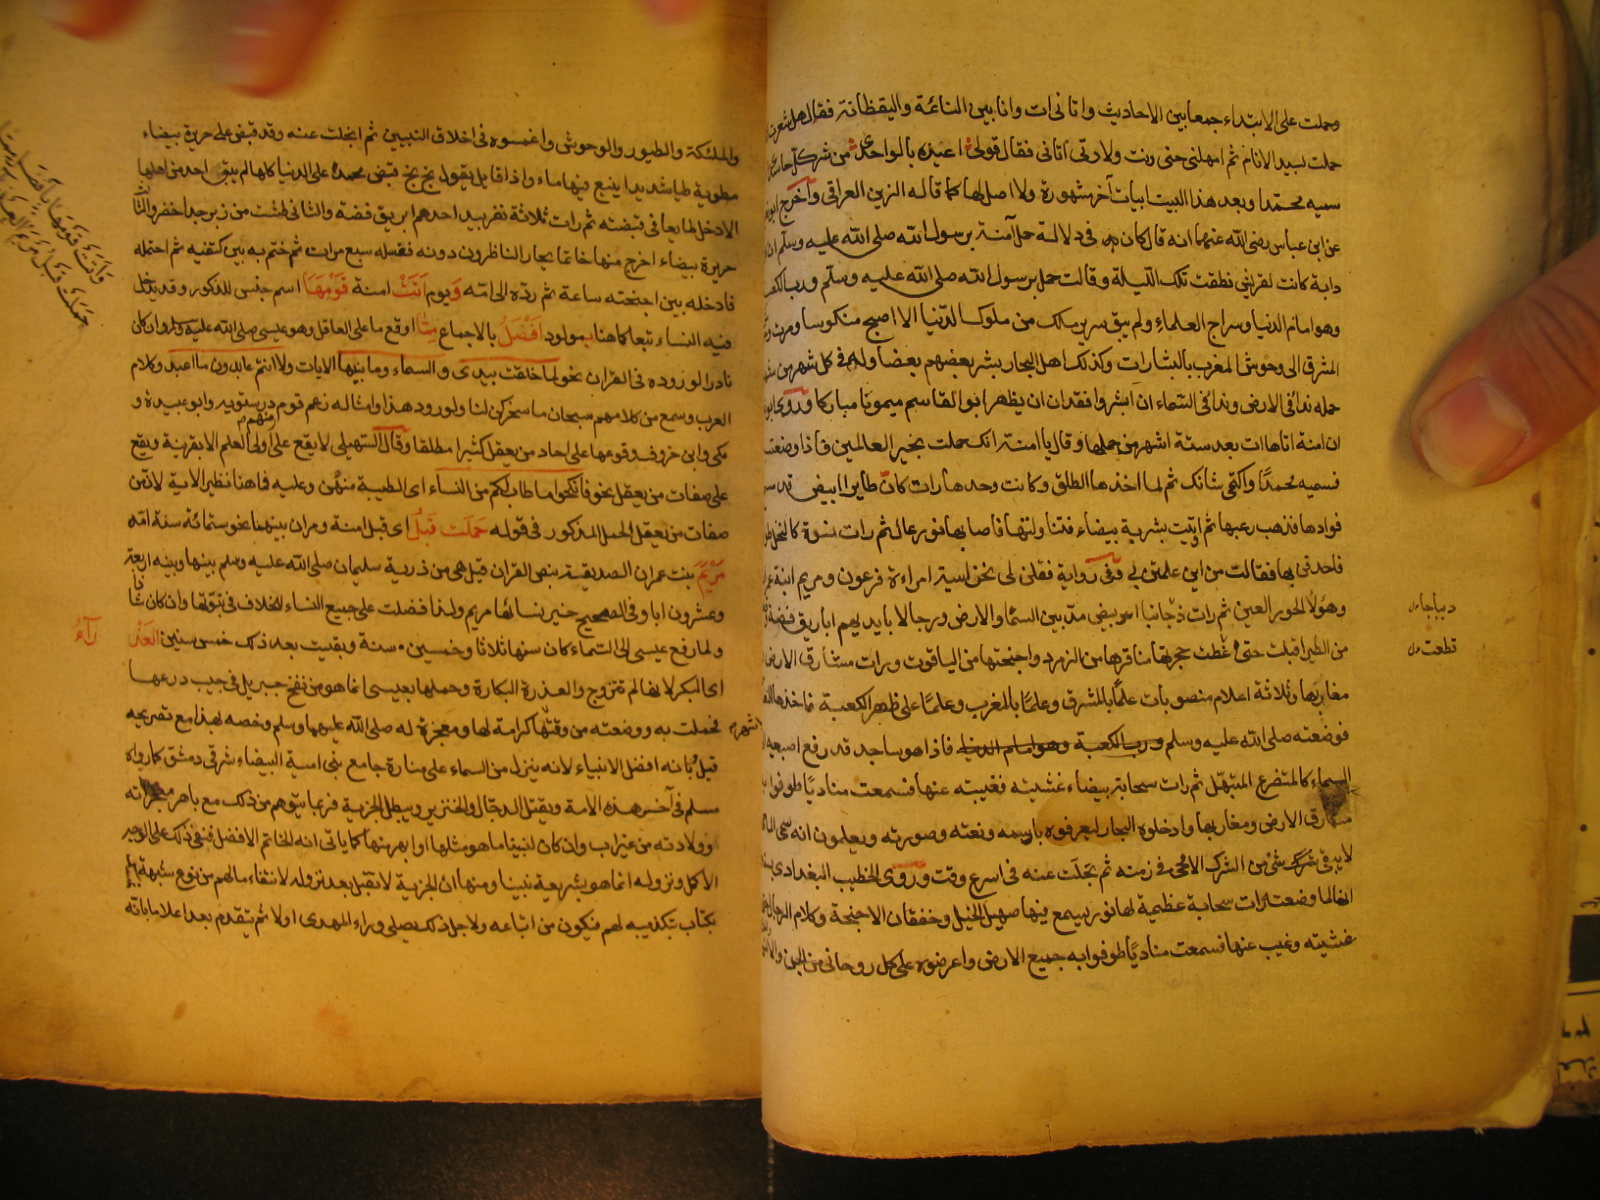 وحملت على الابتداء جمعا بين الاحاديث واتاني ات وانا بين النائمة واليقظانة فقال هل شعرت
حملت بسيد الانام ثم امهلني حتى دنت ولادتي اتاني فقال قولي اعيذه بالواحد من شر كل حاسد
سميه محمدا وبعد هذا البيت ابيات آخر شهورة ولا اصل لها كما قاله الزين العراقي واخرج ابو
عن ابن عباس رضي الله عنهما انه قال كان في دلالة حمل آمنة برسول الله صلى الله عليه وسلم ان
دابة كانت لقريش نطقت تلك الليلة وقالت حمل برسول الله صلى الله عليه وسلم ورب الكعبة
وهو امام الدنيا وسراج العلماء ولم يبق سرير ملك من ملوك الدنيا الا اصبح منكوسا ومرت
المشرق الى وحوش المغرب بالبشارات وكذلك اهل البحار يبشر بعضهم بعضا وله في كل شهر من
حمله نداء في الارض ونداء في السماء ان ابشروا فقد ان ان يظهر ابو القاسم ميمونا مباركا وروى ابو
ان امنة اتاها ات بعد ستة اشهر من حملها وقال يا امنة انك حملت بخير العالمين فاذا وضعته
فسميه محمدا واكتمي شانك ثم لما اخذها الطلق وكانت وحدها رات كان طايرا ابيض قد مسح
فوادها فذهب رعبها ثم اوتيت بشربة بيضاء فتناولتها فاصابها نور عال ثم رات نسوة كالنخل
فاحدقن بها فقالت من اين علمتن بي وفي رواية فقلن لي نحن اسية امراءة فرعون ومريم ابنة عمران
وهؤلا الحور العين ثم رات ابيض مد بين السما والارض ورجالا بايديهم اباريق فضة
من الطير اقبلت حتى غطت حجرتها مناقرها من الزمرد واجنحتها من الياقوت ورات مشارق الارض
مغاربها وثلاثة اعلام منصوبات علما بالمشرق وعلما بالمغرب وعلما على ظهر الكعبة فاخذها
فوضعته صلى الله عليه وسلم ورب الكعبة وهو امام الدنيا فاذا هو ساجد قد رفع اصبعيه
السماء كالمتضرع المبتهل ثم رات سحابة بيضاء غشيته فغيبته عنها فسمعت مناديا طوفوا به
مشارق الارض ومغاربها وادخلوه البحار ليعرفوه باسمه ونعته وصورته ويعلمون انه سمي
لا يبقى شيء من الشرك الا محي في زمنه ثم تجلت عنه في اسرع وقت وروى الخطيب البغدادي
انها لما وضعته رات سحابة عظيمة لها نور يسمع فيها صهيل الخيل وخفقان الاجنحة وكلام الرجال
غشيته وغيب عنها فسمعت مناديا طوفوا به جميع الارض واعرضوه على كل روحاني من الجن والانس
ديباجا
قطعت
والملئكة والطيور والوحوش واغمسوه في اخلاق النبيين ثم انجلت عنه وقد قبض على حريرة بيضاء
مطوية طيا شديدا ينبع فيها ماء واذا قايل يقول بخ بخ قبض محمد على الدنيا كلها لم يبق احد من اهلها
الا دخل طايعا في قبضته ثم رات ثلاثة نفر بيد احدهم ابريق فضة والثاني طشت من زبرجد اخضر والثالث
حريرة بيضاء اخرج منها خاتما يحار الناظرون دونه فغسله سبع مرات ثم ختم به بين كتفيه ثم احتمله
فادخله بين اجنحته ساعة ثم رده الى امه ويوم اتت امنة قومها اسم جنس للذكور وقد يدخل
فيه النساء تبعا كما هنا بمولود افضل بالاجماع مما اوقع ما على العاقل وهو عيسى صلى الله عليه وسلم وان كان
نادرا لوروده في القران نحو لما خلقت بيدي والسماء وما بنيها الايات ولا انتم عابدون ما اعبد وكلام
العرب وسمع من كلامهم سبحان ما سخركن لنا ولورود هذا وامثاله زعم قوم منهم درستويه وابو عبيدة و
مكي وابن خروف وقوعها على احاد من يعقل كثيرا مطلقا وقال السهيلي لا يقع على اولي العلم الا بقرينة ويقع
على صفات من يعقل نحو فانكحوا ما طاب لكم من النساء اي الطيبة منهن وعليه فما هنا نظير الاية لان من
صفات من يعقل الحمل المذكور في قوله حملت قبل اي قبل امنة ومر ان بينهما نحو ستمائة سنة امه
مريم بنت عمران الصديقة بنص القران قيل هي من ذرية سليمان صلى الله عليه وسلم بينها وبينه اربعة
وعشرون ابا وفي الصحيح خير نسائها مريم ولذا فضلت على جميع النساء للخلاف في نبوتها وان كان شاذا
ولما رفع عيسى الى السماء كان سنها ثلاثا وخمسين سنة وبقيت بعد ذلك خمس سنين العذ راء
اي البكر لانها لم تتزوج والعذرة البكارة وحملها بعيسى انما هو من نفخ جبريل في جيب درعها
فحملت به ووضعته من وقتها كرامة لها ومعجزة له صلى الله عليهما وسلم وخصه لهذا مع تصريحه
قبل بانه افضل الانبياء لانه ينزل من السماء على منارة جامع بني امية البيضاء شرقي دمشق كما رواه
مسلم في آخر هذه الامة ويقتل الدجال والخنزير ويبطل الجزية فربما يتوهم من ذلك مع باهر معجزاته
وولادته من غير اب وان كان لنبينا ما هو مثلها او ابهر منها كما ياتي انه الخاتم الافضل فنفى ذلك على الوجه
الاكمل ونزوله انما هو بشريعة نبينا ومنها ان الجزية لا تقبل بعد نزوله لانتفاء ما لهم من نوع شبهة
بكتاب بتكذيبه لهم فيكون من اتباعه ولاجل ذلك يصلي وراء المهدي اولا ثم يتقدم بعد اعلاما بانه
وأتت قومها بأفضل مما
حملت قبل مريم العذراء